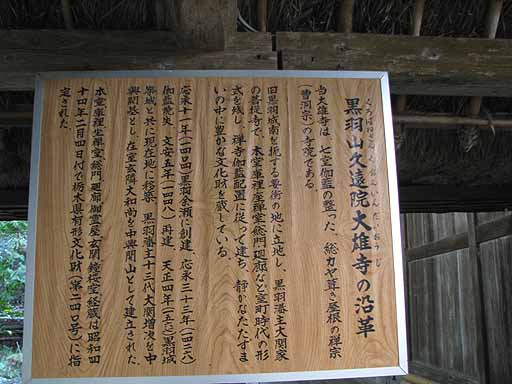 くろばねさんくおんいんだいおうじ
黒羽山久遠院大雄寺の沿革
当大雄寺は、七堂伽藍の整った、総カヤ葺き屋根の禅宗
(曹洞宗)の寺院である。
旧黒羽城南を扼する要衝の地に立地し、黒羽藩主大関家
の菩提寺で、本堂庫裡坐禅堂総門廻廊など室町時代の形
式を残し、禅宗伽藍配置に従って建ち、静かなたたずま
いの中に豊かな文化財を蔵している。
応永十一年(一四〇四)黒羽余瀬に創建、応永三十三年(一四二六)
伽藍焼失、文安五年(一四四八)再建、天正四年(一五七六)黒羽城
築城と共に現在地に移築、黒羽藩主十三代大関増次を中
興開基とし、在室玄隣大和尚を中興開山として建立された。
本堂庫裡坐禅堂総門廻廊御霊屋玄関鐘楼堂経蔵は昭和四
十四年二月四日付で栃木県有形文化財(第二四〇号)に指
定された